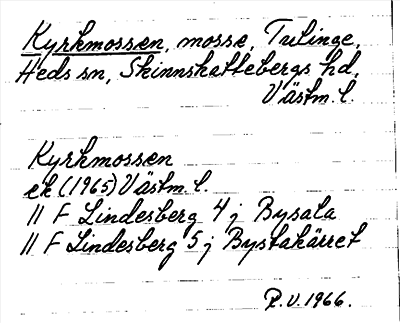 Kyrkmossen, mosse, Tulinge,
Heds sn, Skinnskattebergs hd,
Västm. l.
Kyrkmossen
ek (1965) Västm. l.
11 F Lindesberg 4 j Bysala
11 F Lindesberg 5 j Bystakärret
R.V. 1966.